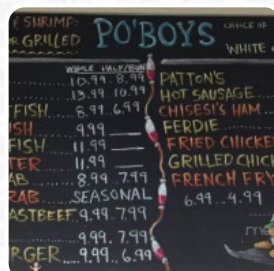 & SHRIMP:
GRILLED
PO'BOYS
CHOICE OF
WHITE
WHOLE HALF/BUN
10.99 8.99
13.99 10.99
FISH 8.99 6.99
ISH 9.99
FISH 11.99
TER 11.99
AB 8.99 7.99
RAB SEASONAL
ASTBEEF 9.99 7.99
9.99 7.99
RGER 9.99 6.99
PATTON'S
HOT SAUSAGE
CHISESI'S HAM
FERDIE
FRIED CHICKE
GRILLED CHIC
FRENCH FRY
6.99 4.99